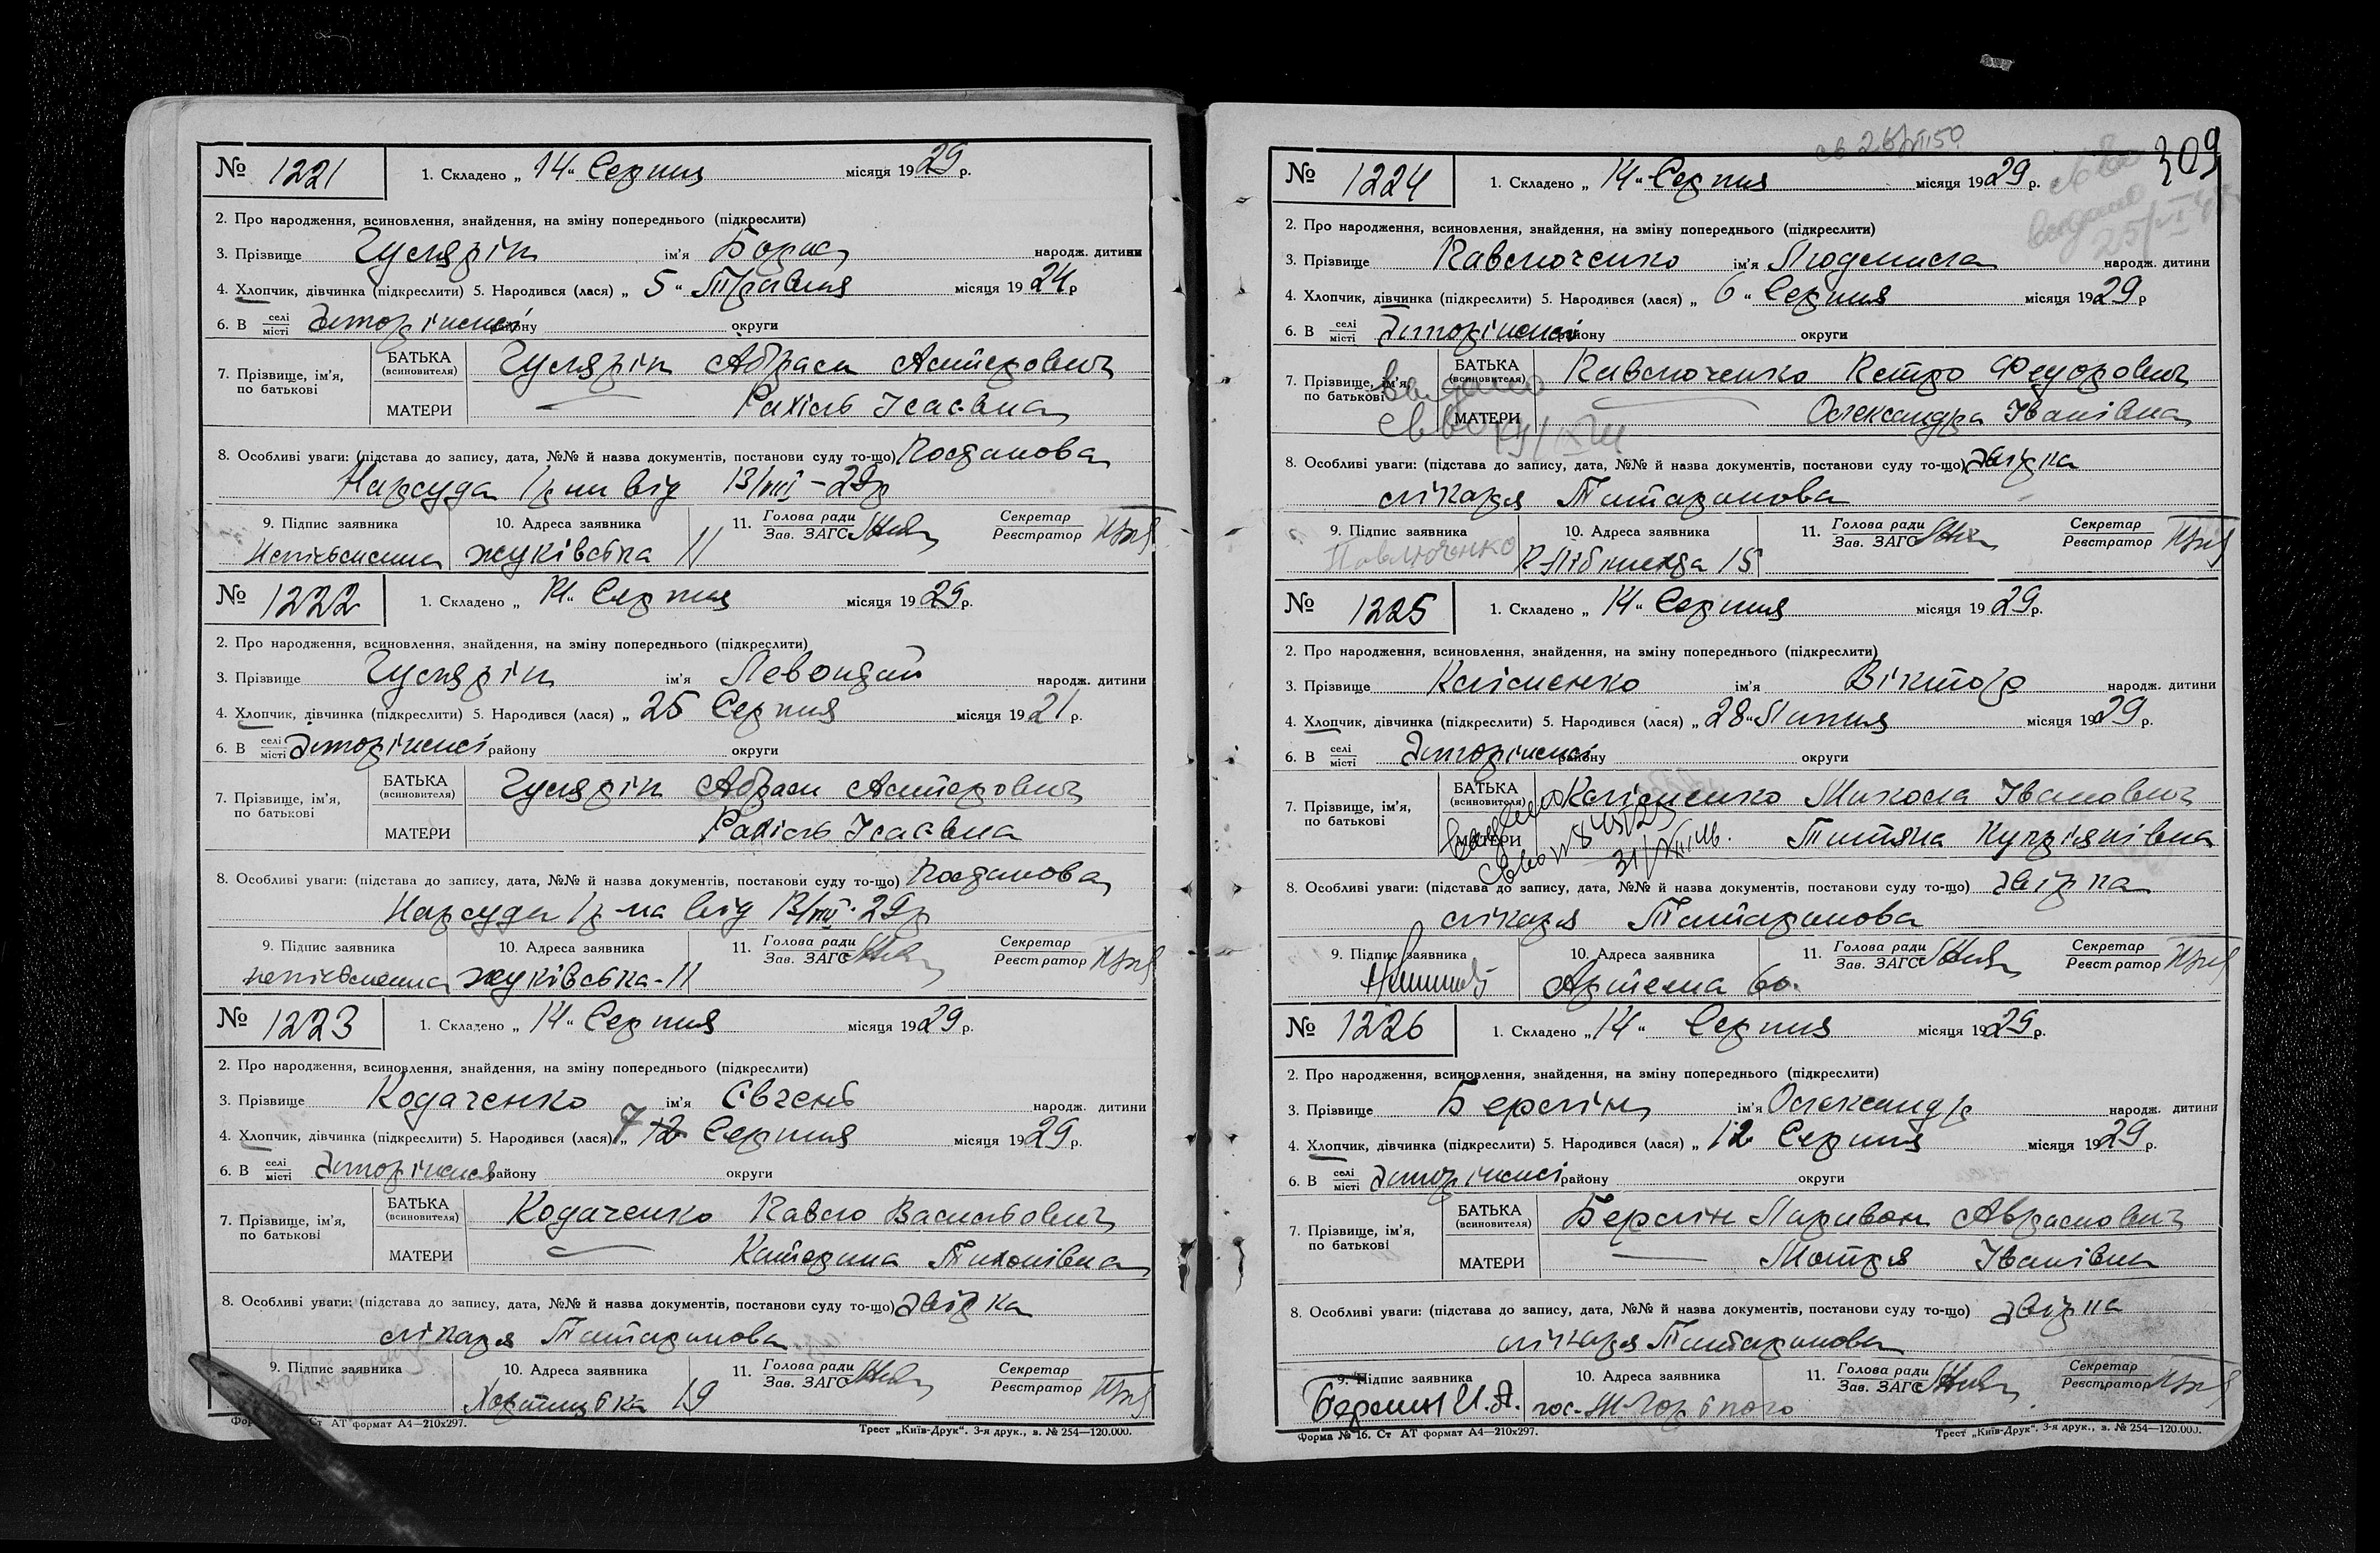 № 1221 1. Складено „ 14 “ Серпня місяця 1929 р.
2. Про народження, всиновлення, знайдення, на зміну попереднього (підкреслити)
3. Прізвище Гуслярін ім’я Борис народж. дитини
4. Хлопчик, дівчинка (підкреслити) 5. Народився (лася) „ 5 “ Травня місяця 1924 р
6. В селі місті Запоріжжі району округи
7. Прізвище, ім’я, по батькові БАТЬКА (всиновителя) Гуслярін Абрам
МАТЕРИ Рахіль Ісаївна
8. Особливі уваги: (підстава до запису, дата, №№ й назва документів, постанови суду то-що) Постанова
Нарсуда від 13/VIII–29р
9. Підпис заявника 10. Адреса заявника 11. Голова ради Зав. ЗАГС Секретар Реєстратор
неписьменна жуківська 11
№ 1222 1. Складено „ 14 “ Серпня місяця 1929 р.
2. Про народження, всиновлення, знайдення, на зміну попереднього (підкреслити)
3. Прізвище Гуслярін ім’я народж. дитини
4. Хлопчик, дівчинка (підкреслити) 5. Народився (лася) „ 25 Серпня місяця 1921 р.
6. В селі місті Запоріжжі району округи
7. Прізвище, ім’я, по батькові БАТЬКА (всиновителя) Гуслярін Абрам
МАТЕРИ Рахіль Ісаївна
8. Особливі уваги: (підстава до запису, дата, №№ й назва документів, постанови суду то-що) Постанова
Нарсуда від 13/VIII-29р
9. Підпис заявника 10. Адреса заявника 11. Голова ради Зав. ЗАГС Секретар Реєстратор
неписьменна жуківська-11
№ 1223 1. Складено „ 14 “ Серпня місяця 1929 р.
2. Про народження, всиновлення, знайдення, на зміну попереднього (підкреслити)
3. Прізвище Кодаченко ім’я Євгень народж. дитини
4. Хлопчик, дівчинка (підкреслити) 5. Народився (лася) „ 7 12 Серпня місяця 1929 р.
6. В селі місті Запоріжжя району округи
7. Прізвище, ім’я, по батькові БАТЬКА (всиновителя) Кодаченко Павло Васильович
МАТЕРИ Катерина Тихонівна
8. Особливі уваги: (підстава до запису, дата, №№ й назва документів, постанови суду то-що) Звірка
лікаря Татаринова
9. Підпис заявника 10. Адреса заявника 11. Голова ради Зав. ЗАГС Секретар Реєстратор
Хортицька 19
Ст АТ формат А4—210х297. Трест „Київ-Друк“. 3-я друк., з. № 254—120.000.
309
№ 1224 1. Складено „ 14 “ Серпня місяця 1929 р.
2. Про народження, всиновлення, знайдення, на зміну попереднього (підкреслити)
3. Прізвище Павлюченко ім’я Людмила народж. дитини
4. Хлопчик, дівчинка (підкреслити) 5. Народився (лася) „ 6 “ Серпня місяця 1929 р
6. В селі місті Запоріжжі району округи
7. Прізвище, ім’я, по батькові БАТЬКА (всиновителя) Павлюченко Петро Федорович
МАТЕРИ Олександра Іванівна
8. Особливі уваги: (підстава до запису, дата, №№ й назва документів, постанови суду то-що) Звірка
лікаря Татаринова
9. Підпис заявника 10. Адреса заявника 11. Голова ради Зав. ЗАГС Секретар Реєстратор
Павлюченко К-Лібкнехта 15
№ 1225 1. Складено „ 14 “ Серпня місяця 1929 р.
2. Про народження, всиновлення, знайдення, на зміну попереднього (підкреслити)
3. Прізвище Клименко ім’я Віктор народж. дитини
4. Хлопчик, дівчинка (підкреслити) 5. Народився (лася) „ 28 “ Липня місяця 1929 р.
6. В селі місті Запоріжжі району округи
7. Прізвище, ім’я, по батькові БАТЬКА (всиновителя) Клименко Микола Іванович
МАТЕРИ Титяна Купріянівна
8. Особливі уваги: (підстава до запису, дата, №№ й назва документів, постанови суду то-що) Звірка
лікаря Татаринова
9. Підпис заявника 10. Адреса заявника 11. Голова ради Зав. ЗАГС Секретар Реєстратор
Артема 60.
№ 1226 1. Складено „ 14 “ Серпня місяця 1929 р.
2. Про народження, всиновлення, знайдення, на зміну попереднього (підкреслити)
3. Прізвище Берлін ім’я Олександр народж. дитини
4. Хлопчик, дівчинка (підкреслити) 5. Народився (лася) „ 12 Серпня місяця 1929 р.
6. В селі місті Запоріжжі району округи
7. Прізвище, ім’я, по батькові БАТЬКА (всиновителя) Берлін Ларивон Аврамович
МАТЕРИ Мотря Іванівна
8. Особливі уваги: (підстава до запису, дата, №№ й назва документів, постанови суду то-що) Звірка
лікаря Татаринова
9. Підпис заявника 10. Адреса заявника 11. Голова ради Зав. ЗАГС Секретар Реєстратор
Берлин И.А.
Форма № 16. Ст АТ формат А4—210х297. Трест „Київ-Друк“. 3-я друк., з. № 254—120.000.